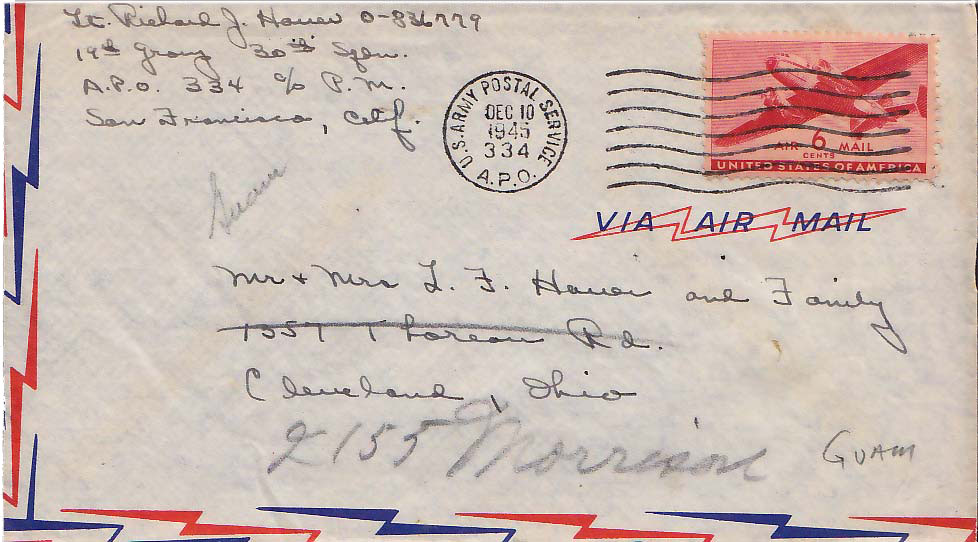 Lt. Richard J. Hauser O-836779
19th Group 30th Sqdn.
A.P.O. 334 c/o P.M.
San Francisco, Calif.
U.S. ARMY POSTAL SERVICE
DEC 10
1945
334
A.P.O.
AIR 6 MAIL
CENTS
UNITED STATES OF AMERICA
VIA AIR MAIL
Guam
Mr + Mrs L. F. Hauser and Family
1357 Thoreau Rd.
Cleveland, Ohio
2155 Morrison
GUAM